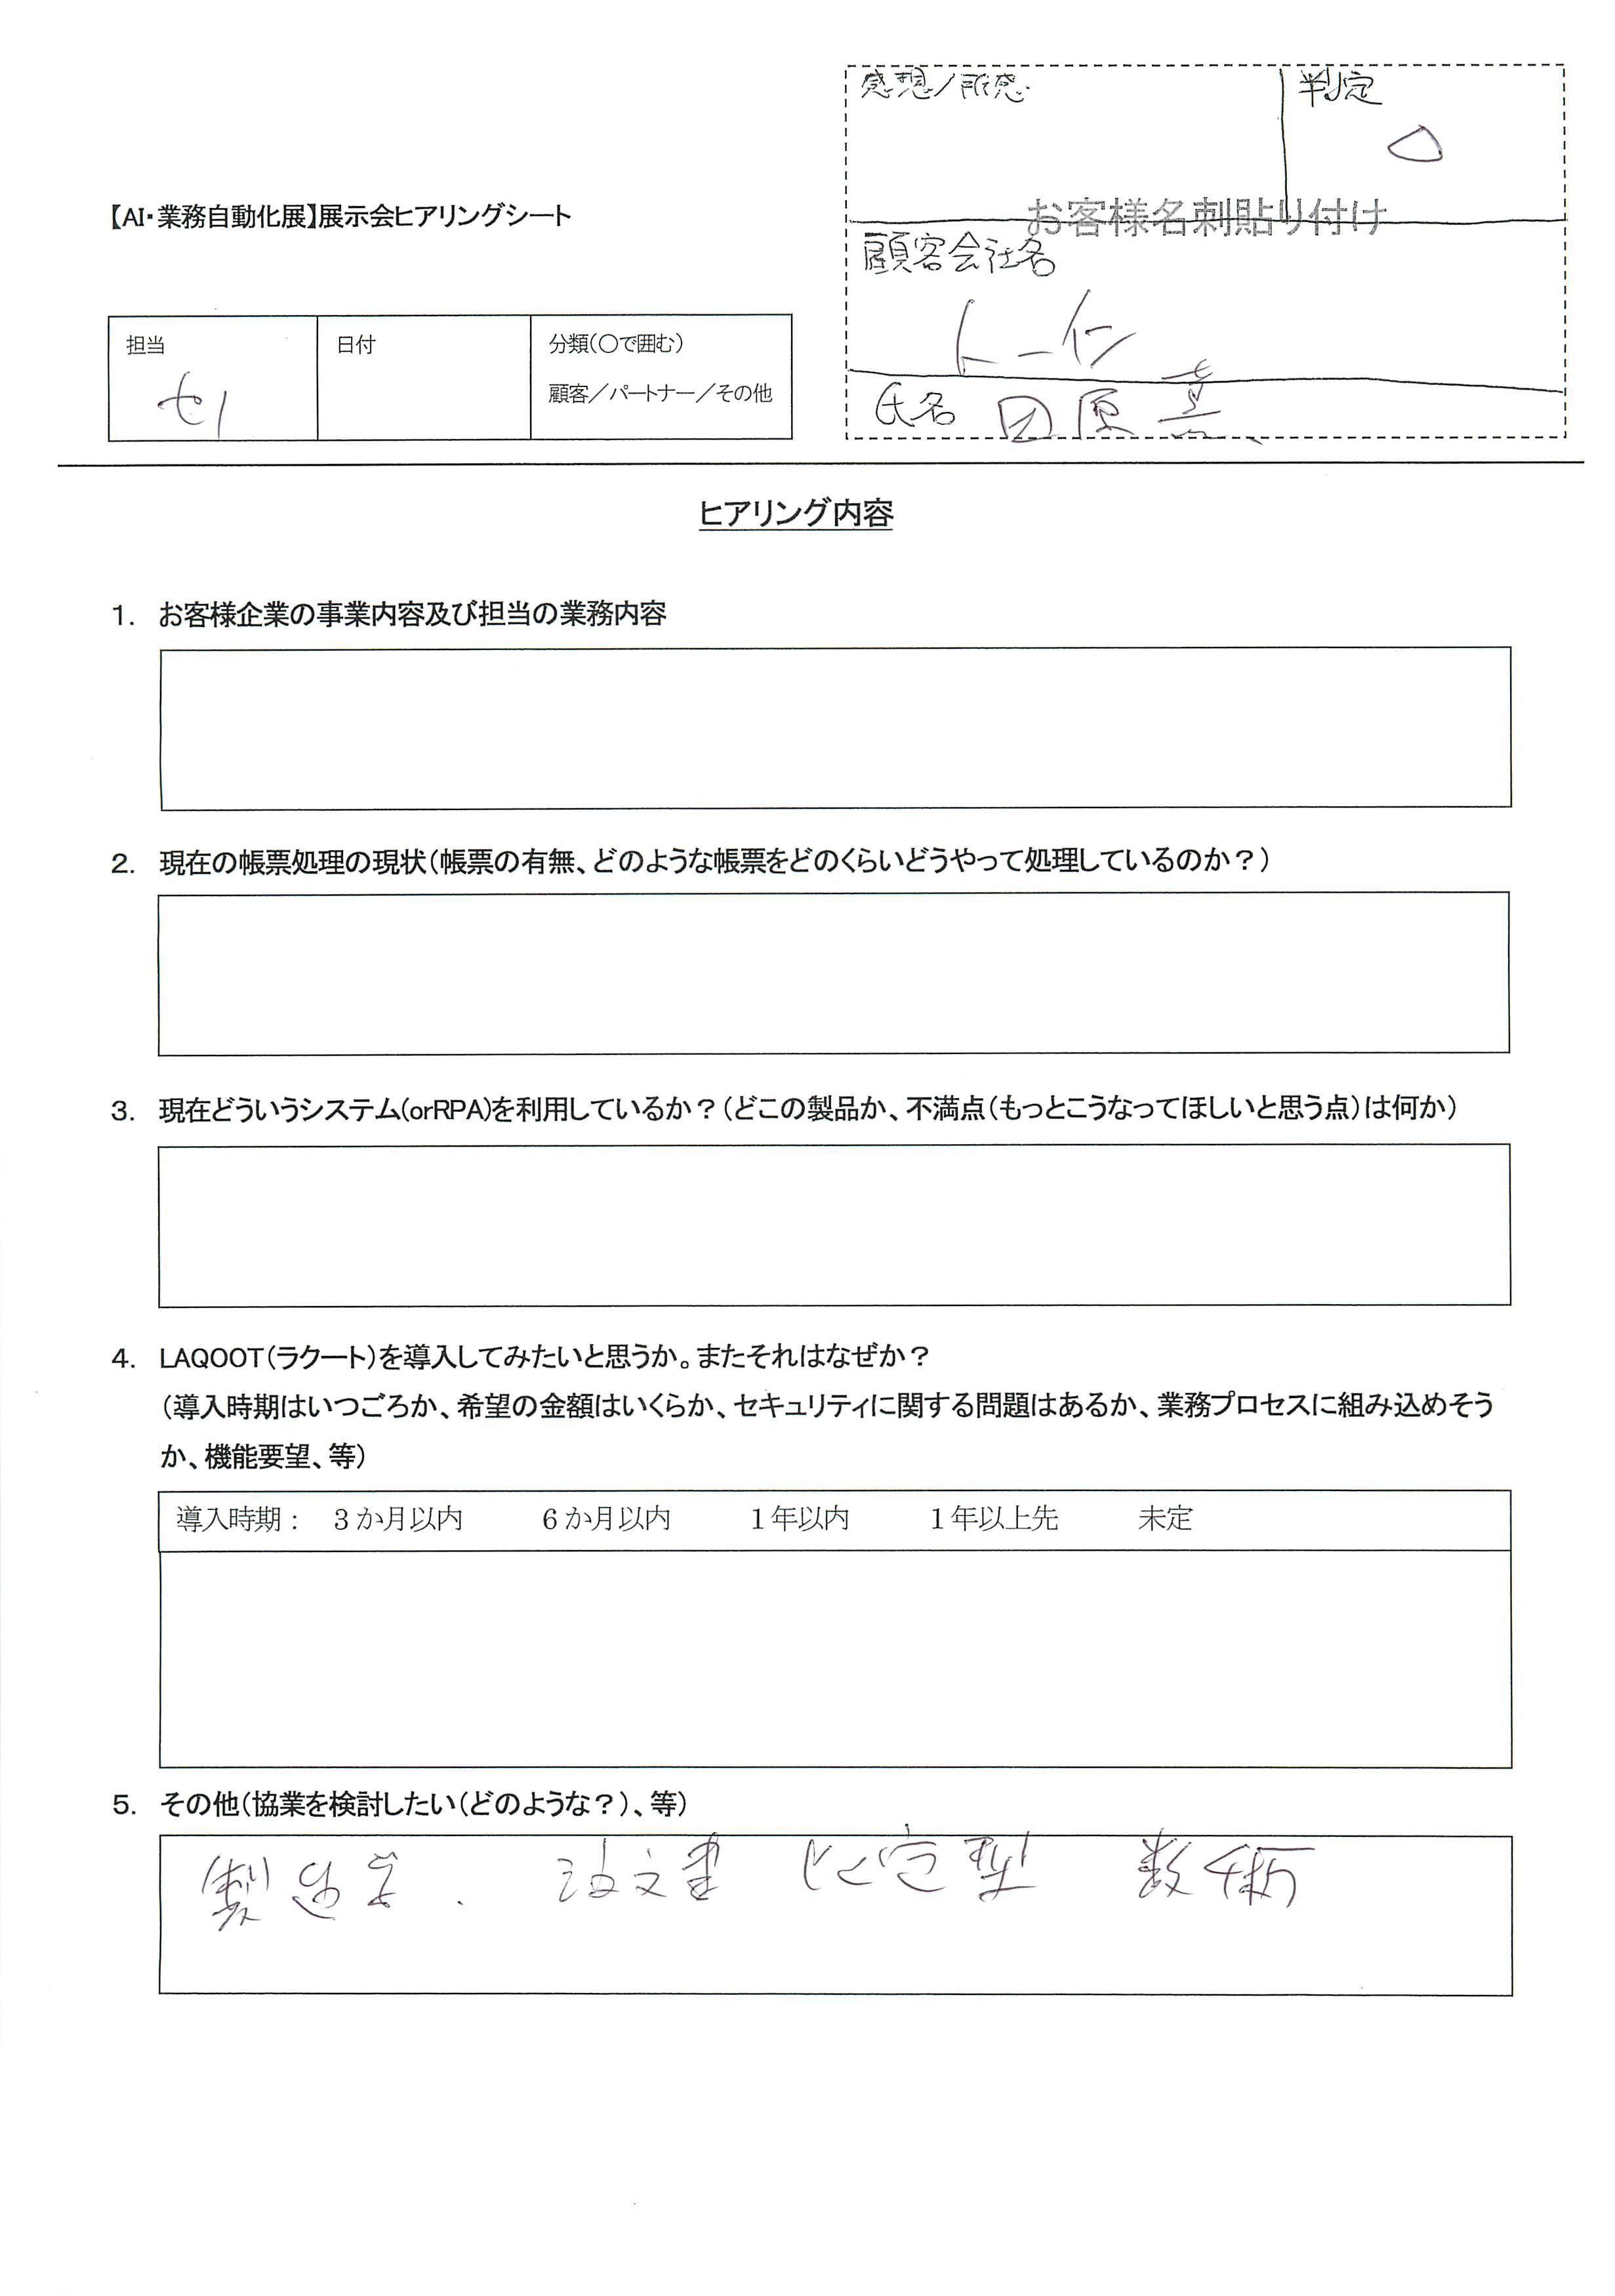 感想/所感
判定
○
【AI・業務自動化展】展示会ヒアリングシート
お客様名刺貼り付け
顧客会社名
トーイン
担当
日付
分類(〇で囲む)
顧客/パートナー/その他
氏名 田原
ヒアリング内容
1. お客様企業の事業内容及び担当の業務内容
2. 現在の帳票処理の現状(帳票の有無、どのような帳票をどのくらいどうやって処理しているのか?)
3. 現在どういうシステム(orRPA)を利用しているか?(どこの製品か、不満点(もっとこうなってほしいと思う点)は何か)
4. LAQOOT(ラクート)を導入してみたいと思うか。またそれはなぜか?
(導入時期はいつごろか、希望の金額はいくらか、セキュリティに関する問題はあるか、業務プロセスに組み込めそう
か、機能要望、等)
導入時期: 3か月以内 6か月以内 1年以内 1年以上先 未定
5. その他(協業を検討したい(どのような?)、等)
製造 注文書 ヒ定型 数千